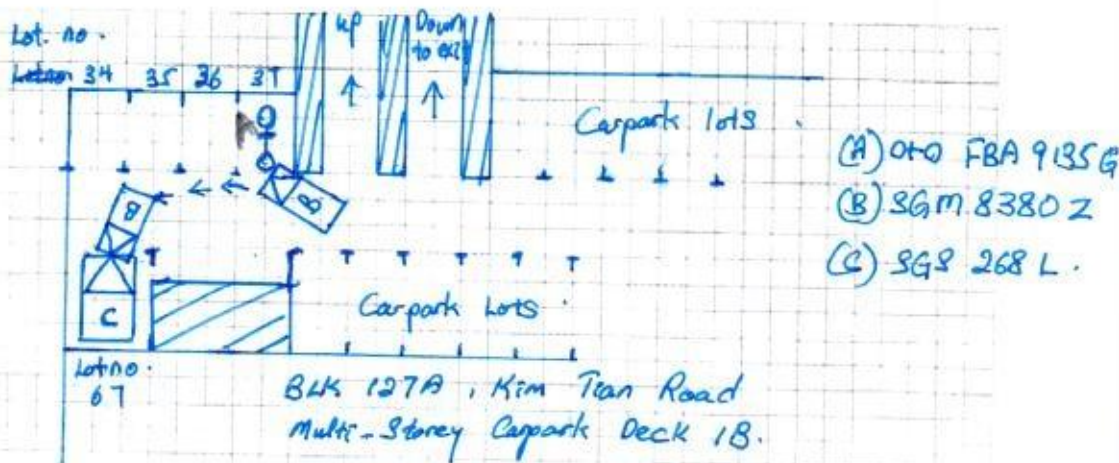 Lot. no.
34 35 36 37
up
Down
to exit
Carpark lots
(A) FBA 9135G
(B) SGM 8380Z
(C) SGS 268L.
B
B
C
Carpark Lots
Lot no.
67
BLK 127A, Kim Tian Road
Multi-Storey Carpark Deck 1B.